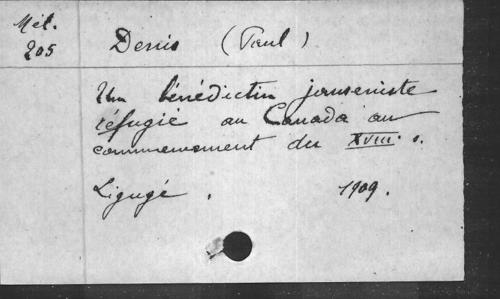 Mél.
205
Denis (Paul)
Un bénédictin janséniste
réfugié au Canada au
commencement du XVIII s.
Ligugé. 1909.